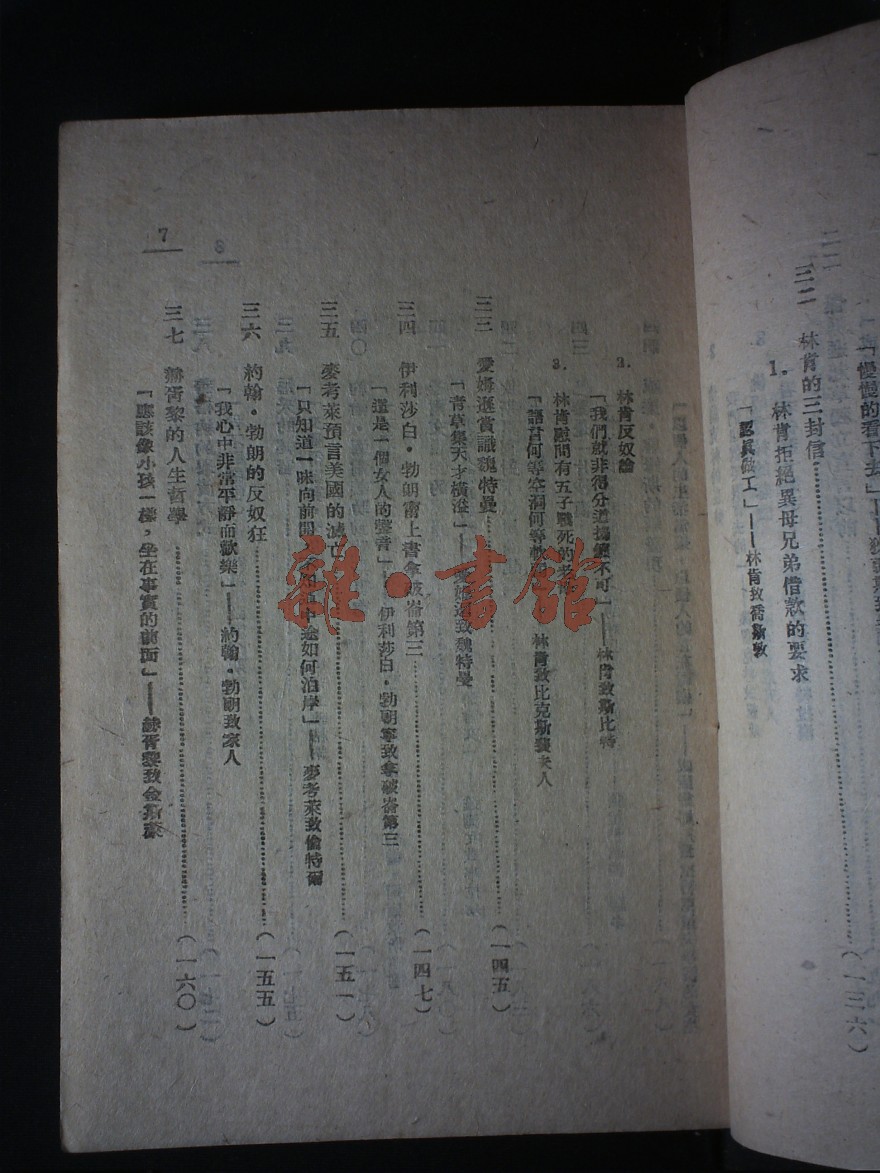 「慢慢的看下去」——
三二 林肯的三封信 (一三六)
1. 林肯拒絕異母兄弟借款的要求
「認真做工」——林肯致喬斯敦
2. 林肯反奴論
「我們就非得分道揚鑣不可」——林肯致斯比特
3. 林肯慰問有五子戰死的老母
「語言何等空洞何等軟 林肯致比克斯裴夫人
三三 愛姆遜賞識魏特曼 (一四五)
「青草集天才橫溢」——愛姆遜致魏特曼
三四 伊利莎白·勃朗甯上書拿破崙第三 (一四七)
「這是一個女人的聲音」——伊利莎白·勃朗寧致拿破崙第三
三五 麥考萊預言美國的滅亡 (一五一)
「只知道一味向前開 中途如何泊岸」——麥考萊致倫特爾
三六 約翰·勃朗的反奴狂 (一五五)
「我心中非常平靜而歡樂」——約翰·勃朗致家人
三七 赫胥黎的人生哲學 (一六〇)
「應該像小孩一樣，坐在事實的前面」——赫胥黎致金斯萊
7
8
雜·書館